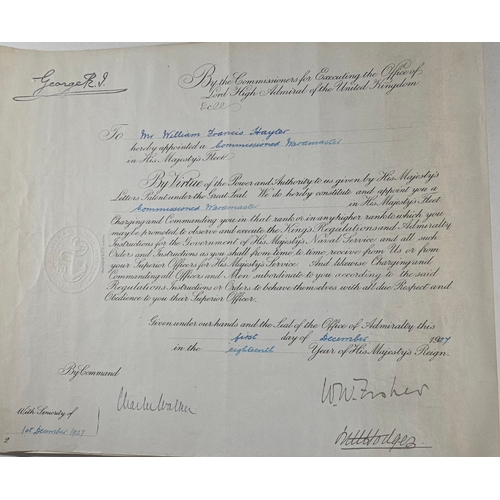 George R.I.
By the Commissioners for Executing the Office of
Lord High Admiral of the United Kingdom
&c &c &c
To Mr. William Francis Hayter
hereby appointed a Commissioned Wardmaster
in His Majesty's Fleet
By Virtue of the Power and Authority to us given by His Majesty's
Letters Patent under the Great Seal. We do hereby constitute and appoint you a
Commissioned Wardmaster in His Majesty's Fleet
Charging and Commanding you in that rank or in any higher rank to which you
may be promoted, to observe and execute the King's Regulations and Admiralty
Instructions for the Government of His Majesty's Naval Service and all such
Orders and Instructions as you shall from time to time receive from Us or from
your Superior Officers for His Majesty's Service. And likewise Charging and
Commanding all Officers and Men subordinate to you according to the said
Regulations, Instructions or Orders to behave themselves with all due Respect and
Obedience to you their Superior Officer.
Given under our hands and the Seal of the Office of Admiralty this
first day of December 1927
in the eighteenth Year of His Majesty's Reign.
By Command
Charles Walker
W.W. Fisher
Hodges
With Seniority of
1st December 1927
2